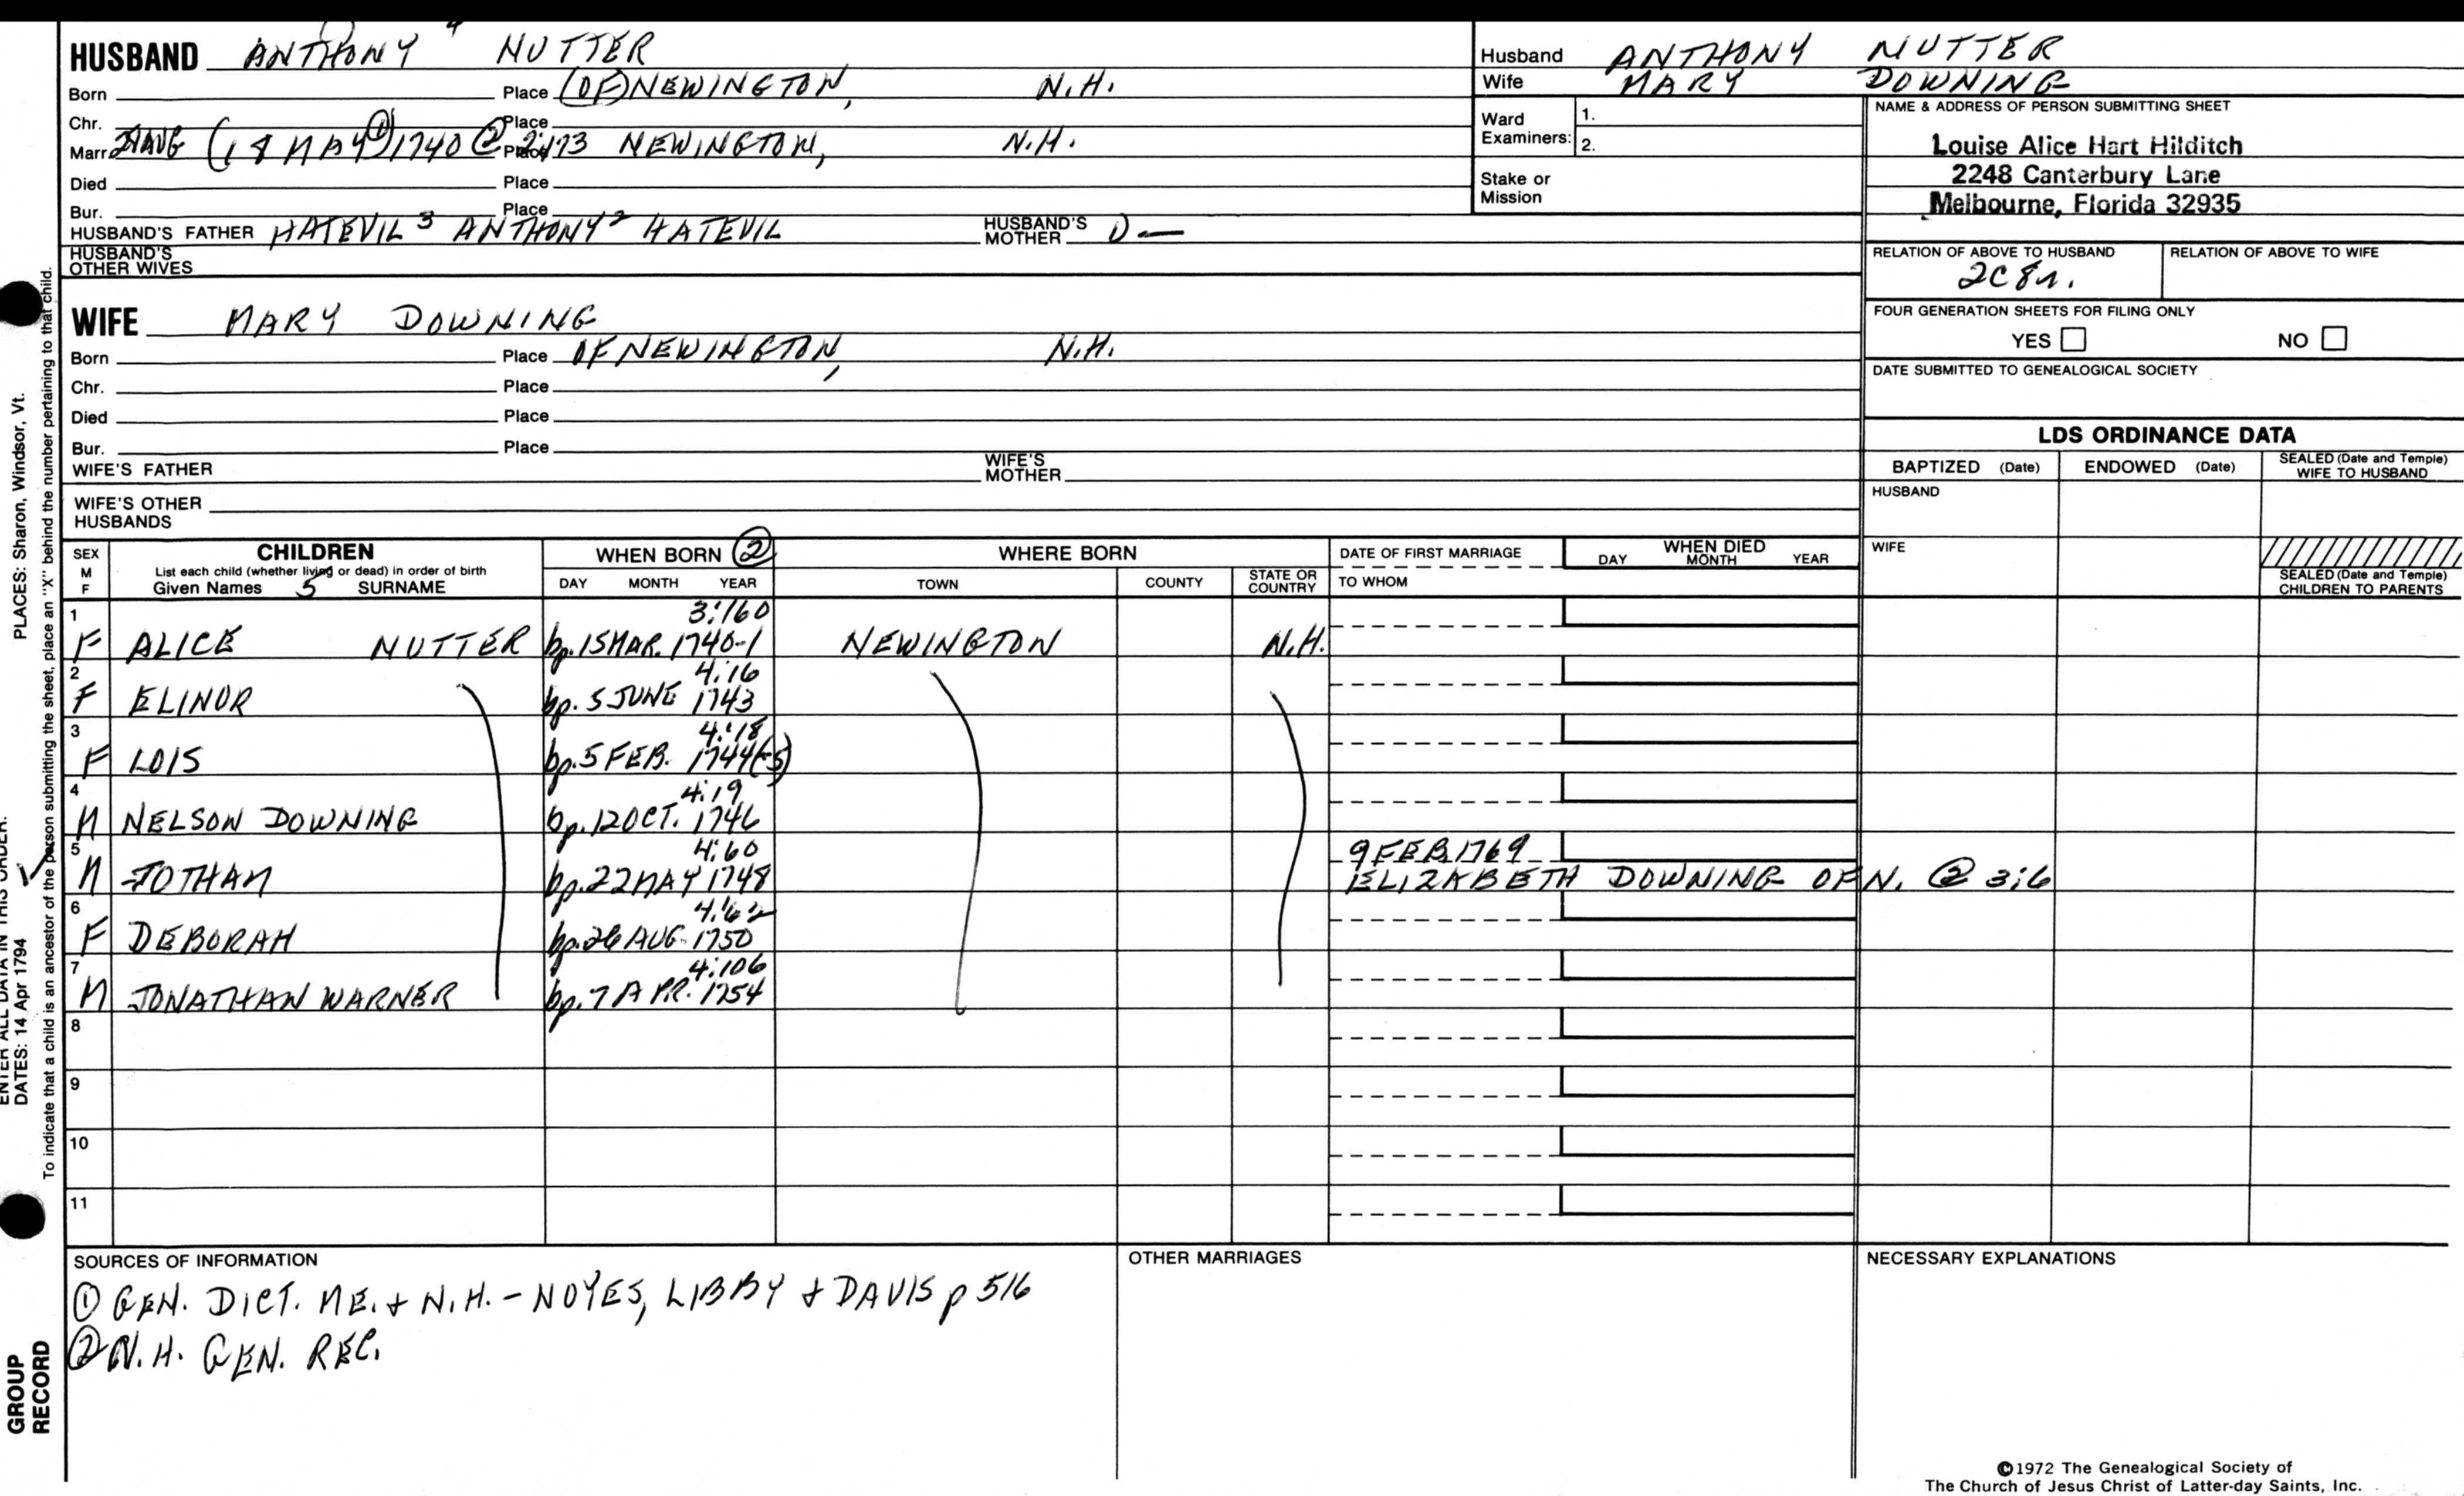 HUSBAND ANTHONY 4 NUTTER
Born Place (OF) NEWINGTON, N.H.
Chr. Place
Marr. AUG (18 MAY ① ) 1740 @ Place 2:173 NEWINGTON, N.H.
Died Place
Bur. Place
HUSBAND'S FATHER HATEVIL 3 ANTHONY 2 HATEVIL HUSBAND'S MOTHER
HUSBAND'S OTHER WIVES
WIFE MARY DOWNING
Born Place OF NEWINGTON, N.H.
Chr. Place
Died Place
Bur. Place
WIFE'S FATHER WIFE'S MOTHER
WIFE'S OTHER HUSBANDS
Husband ANTHONY NUTTER
Wife MARY DOWNING
Ward Examiners: 1.
2.
Stake or Mission
NAME & ADDRESS OF PERSON SUBMITTING SHEET
Louise Alice Hart Hilditch
2248 Canterbury Lane
Melbourne, Florida 32935
RELATION OF ABOVE TO HUSBAND RELATION OF ABOVE TO WIFE
2C8r.
FOUR GENERATION SHEETS FOR FILING ONLY
YES NO
DATE SUBMITTED TO GENEALOGICAL SOCIETY
LDS ORDINANCE DATA
BAPTIZED (Date) ENDOWED (Date) SEALED (Date and Temple) WIFE TO HUSBAND
HUSBAND
WIFE
SEALED (Date and Temple) CHILDREN TO PARENTS
SEX M F CHILDREN WHEN BORN ② WHERE BORN DATE OF FIRST MARRIAGE WHEN DIED
List each child (whether living or dead) in order of birth
Given Names 5 SURNAME DAY MONTH YEAR TOWN COUNTY STATE OR COUNTRY TO WHOM DAY MONTH YEAR
1 3:160
F ALICE NUTTER bp. 15 MAR. 1740-1 NEWINGTON N.H.
2 4:16
F ELINOR bp. 5 JUNE 1743
3 4:18
F LOIS bp. 5 FEB. 1744(-5)
4 4:19
M NELSON DOWNING bp. 12 OCT. 1746
5 4:60 9 FEB 1769
M JOTHAM bp. 22 MAY 1748 ELIZABETH DOWNING OF N. ② 3:6
6 4:62
F DEBORAH bp. 26 AUG. 1750
7 4:106
M JONATHAN WARNER bp. 7 APR. 1754
8
9
10
11
SOURCES OF INFORMATION OTHER MARRIAGES NECESSARY EXPLANATIONS
① GEN. DICT. ME. + N.H. - NOYES, LIBBY + DAVIS p 516
② N.H. GEN. REC.
©1972 The Genealogical Society of
The Church of Jesus Christ of Latter-day Saints, Inc.
PLACES: Sharon, Windsor, Vt.
To indicate that a child is an ancestor of the person submitting the sheet, place an "X" behind the number pertaining to that child.
ENTER ALL DATA IN THIS ORDER:
DATES: 14 Apr 1794
GROUP
RECORD